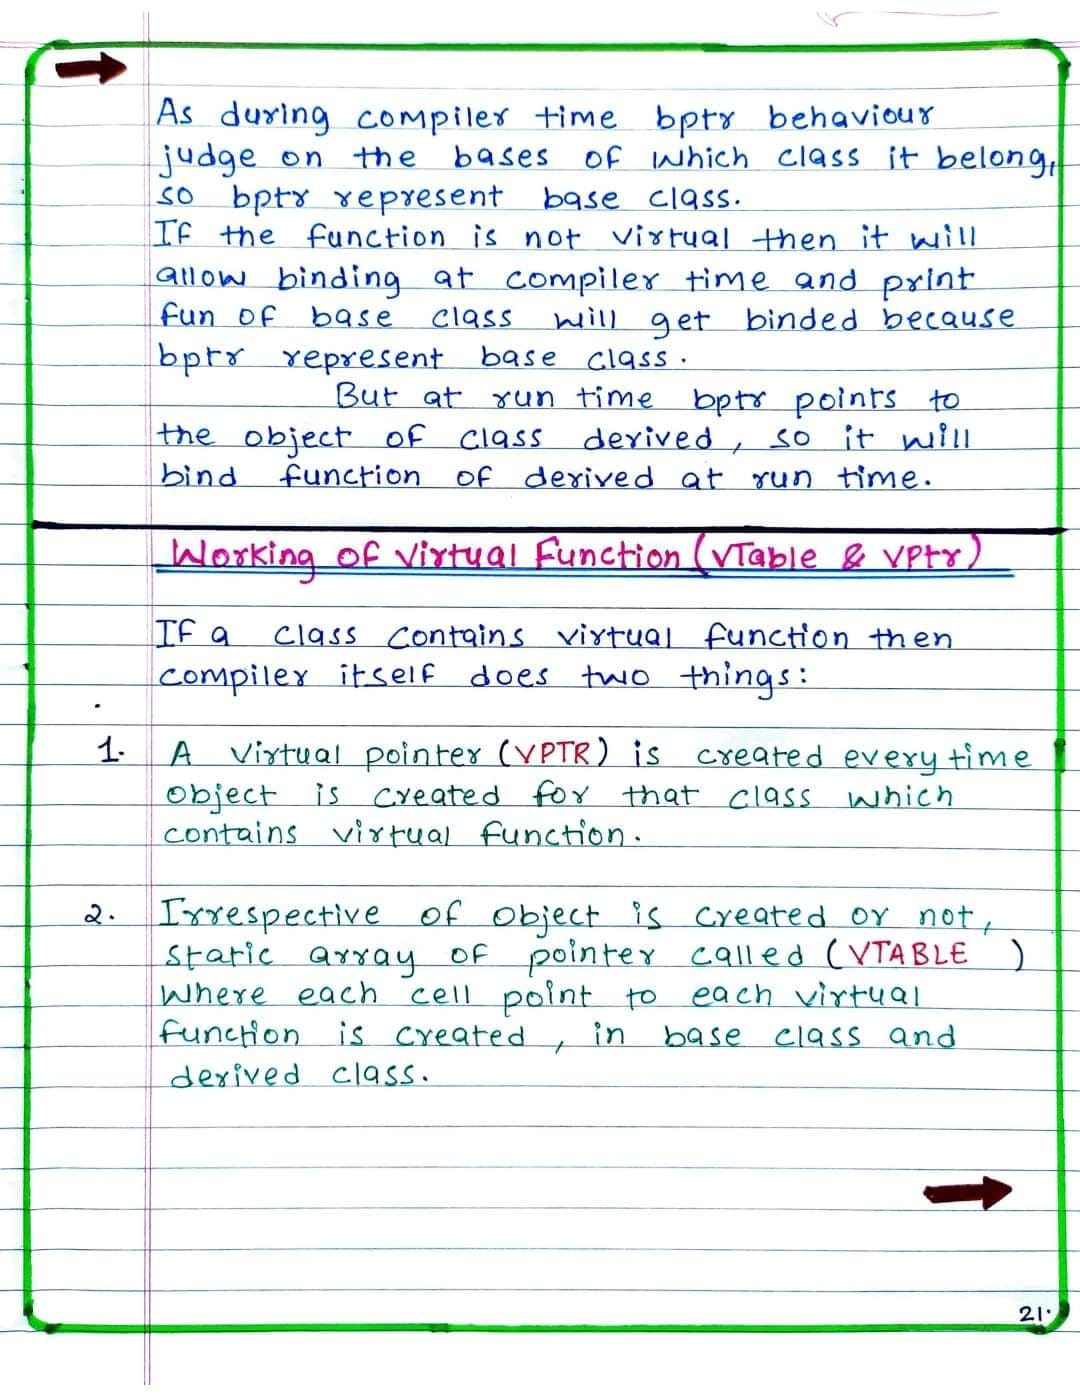 As during compiler time bptr behaviour
judge on the bases of which class it belong,
so bptr represent base class.
If the function is not virtual then it will
allow binding at compiler time and print
fun of base class will get binded because
bptr represent base class.
But at run time bptr points to
the object of class derived, so it will
bind function of derived at run time.
Working of Virtual Function (VTable & VPtr)
If a class contains virtual function then
compiler itself does two things:
1. A Virtual pointer (VPTR) is created every time
object is created for that class which
contains virtual function.
2. Irrespective of object is created or not,
static array of pointer called (VTABLE )
Where each cell point to each virtual
function is created, in base class and
derived class.
21.